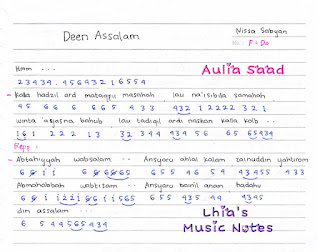 Deen Assalam
Nissa Sabyan
F = Do
Aulia Saad
Hmm ...
2 3 4 3 4 . 4 5 6 4 3 2 1 6 5 5 4
Kalla hadzil ard matakfii masahah . lau na'isibila samahah
4 5 6 6 6 6 6 5 4 3 3 4 3 2 1 2 2 2 2 3 2 1
winta 'asyasna bahub lau tadiqil ardi naskan kalla kolb ..
1 6 1 2 2 2 1 3 3 2 3 4 4 4 3 4 5 6 6 5 6 5 4 3 4
Reff :
Abtahiyyah wabsalam .. Ansyaru ahlal kalam zainuddin yahtirom
6 6 i i 6 6 6 6 6 5 6 5 5 4 5 6 5 4 4 3 4 5 5 4 3 3
Abmahabbah wabtisam .. Ansyaru bainil anam hadahu
6 6 i i 2 2 i 6 6 i i 5 6 5 6 5 5 4 3 5 4 4 4 3 4 5
din assalam ..
6 5 5 4 4 5 6 5 4 3 4
Lhia's
Music Notes